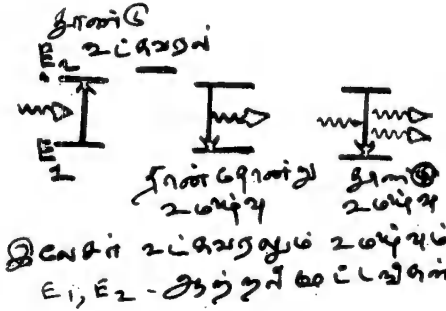 தூண்டு
E₂ உட்கவரல்
E₁
தான்தோன்று தூண்டு
உமிழ்வு உமிழ்வு
லேசர் உட்கவரலும் உமிழ்வும்
E₁, E₂ - ஆற்றல் மட்டங்கள்